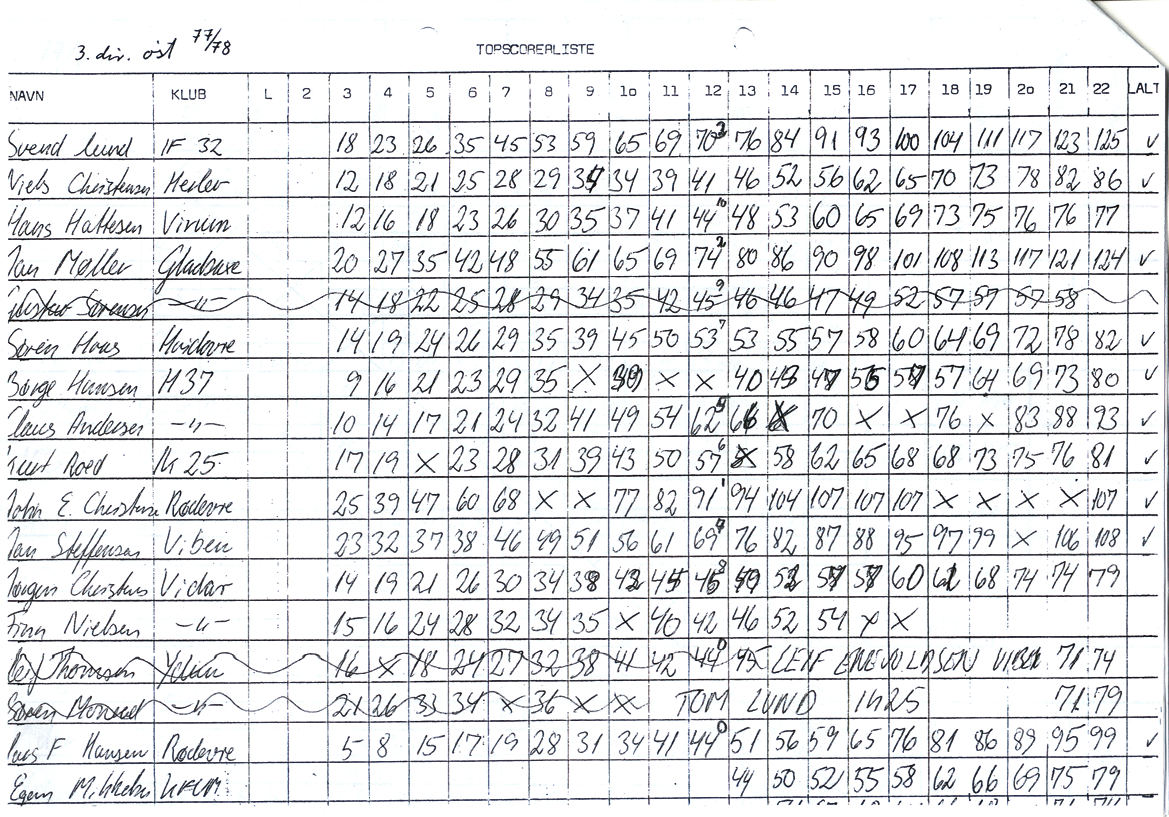 3. div. öst 77/78
TOPSCOREALISTE
NAVN KLUB L 2 3 4 5 6 7 8 9 10 11 12 13 14 15 16 17 18 19 20 21 22 LALT
Svend Lund IF 32 18 23 26 35 45 53 59 65 69 70 3 76 84 91 93 100 104 111 117 123 125 ✓
Niels Christensen 12 18 21 25 28 29 34 39 41 46 52 56 62 65 70 73 78 82 86 ✓
Hans Hattesen Virum 12 16 18 23 26 30 35 37 41 44 10 48 53 60 65 69 73 75 76 76 77
Jan Møller 20 27 35 42 48 55 61 65 69 74 2 80 86 90 98 101 108 113 117 121 124 ✓
Sørensen —"— 14 18 22 25 28 29 34 35 42 45 9 46 46 47 49 52 57 57 57 58
Søren Haas Hvidovre 14 19 24 26 29 35 39 45 50 53 7 53 55 57 58 60 64 69 72 78 82 ✓
Børge Hansen H37 9 16 21 23 29 35 X X X 40 57 64 69 73 80 ✓
Claus Andersen —"— 10 14 17 21 24 32 41 49 54 62 X 70 X X 76 X 83 88 93 ✓
Kurt Roed IK 25 17 19 X 23 28 31 39 43 50 57 6 X 58 62 65 68 68 73 75 76 81 ✓
John E. Christensen Rødovre 25 39 47 60 68 X X 77 82 91 1 94 104 107 107 107 X X X X 107 ✓
Jan Steffensen Viben 23 32 37 38 46 49 51 56 61 69 4 76 82 87 88 95 97 99 X 106 108 ✓
Jørgen Christens Vidar 14 19 21 26 30 34 38 8 60 68 74 74 79
Finn Nielsen —"— 15 16 24 28 32 34 35 X 40 42 46 52 54 X X
Thomsen Ydun 16 X 18 24 27 32 38 41 42 44 0 45 LEIF ENEVOLDSEN VIBEN 71 74
Søren —"— 21 26 33 34 X 36 X X TOM LUND IK25 71 79
Lars F Hansen Rødovre 5 8 15 17 19 28 31 34 41 44 0 51 56 59 65 76 81 86 89 95 99 ✓
Egon KFUM 44 50 52 55 58 62 66 69 75 79